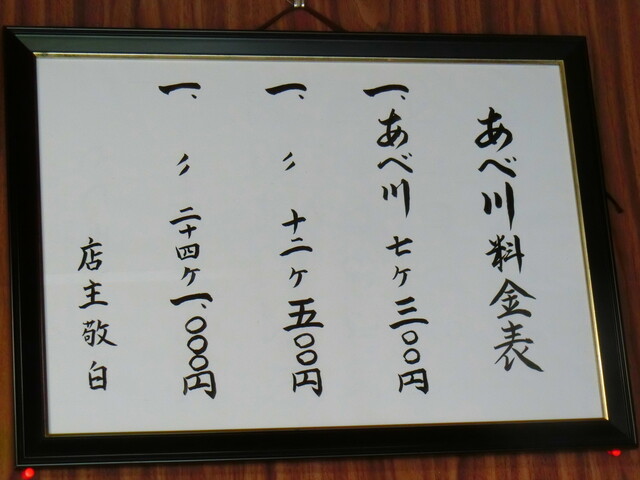 あべ川料金表
一、あべ川 七ヶ 三〇〇円
一、〃 十二ヶ 五〇〇円
一、〃 二十四ヶ 一、〇〇〇円
店主敬白